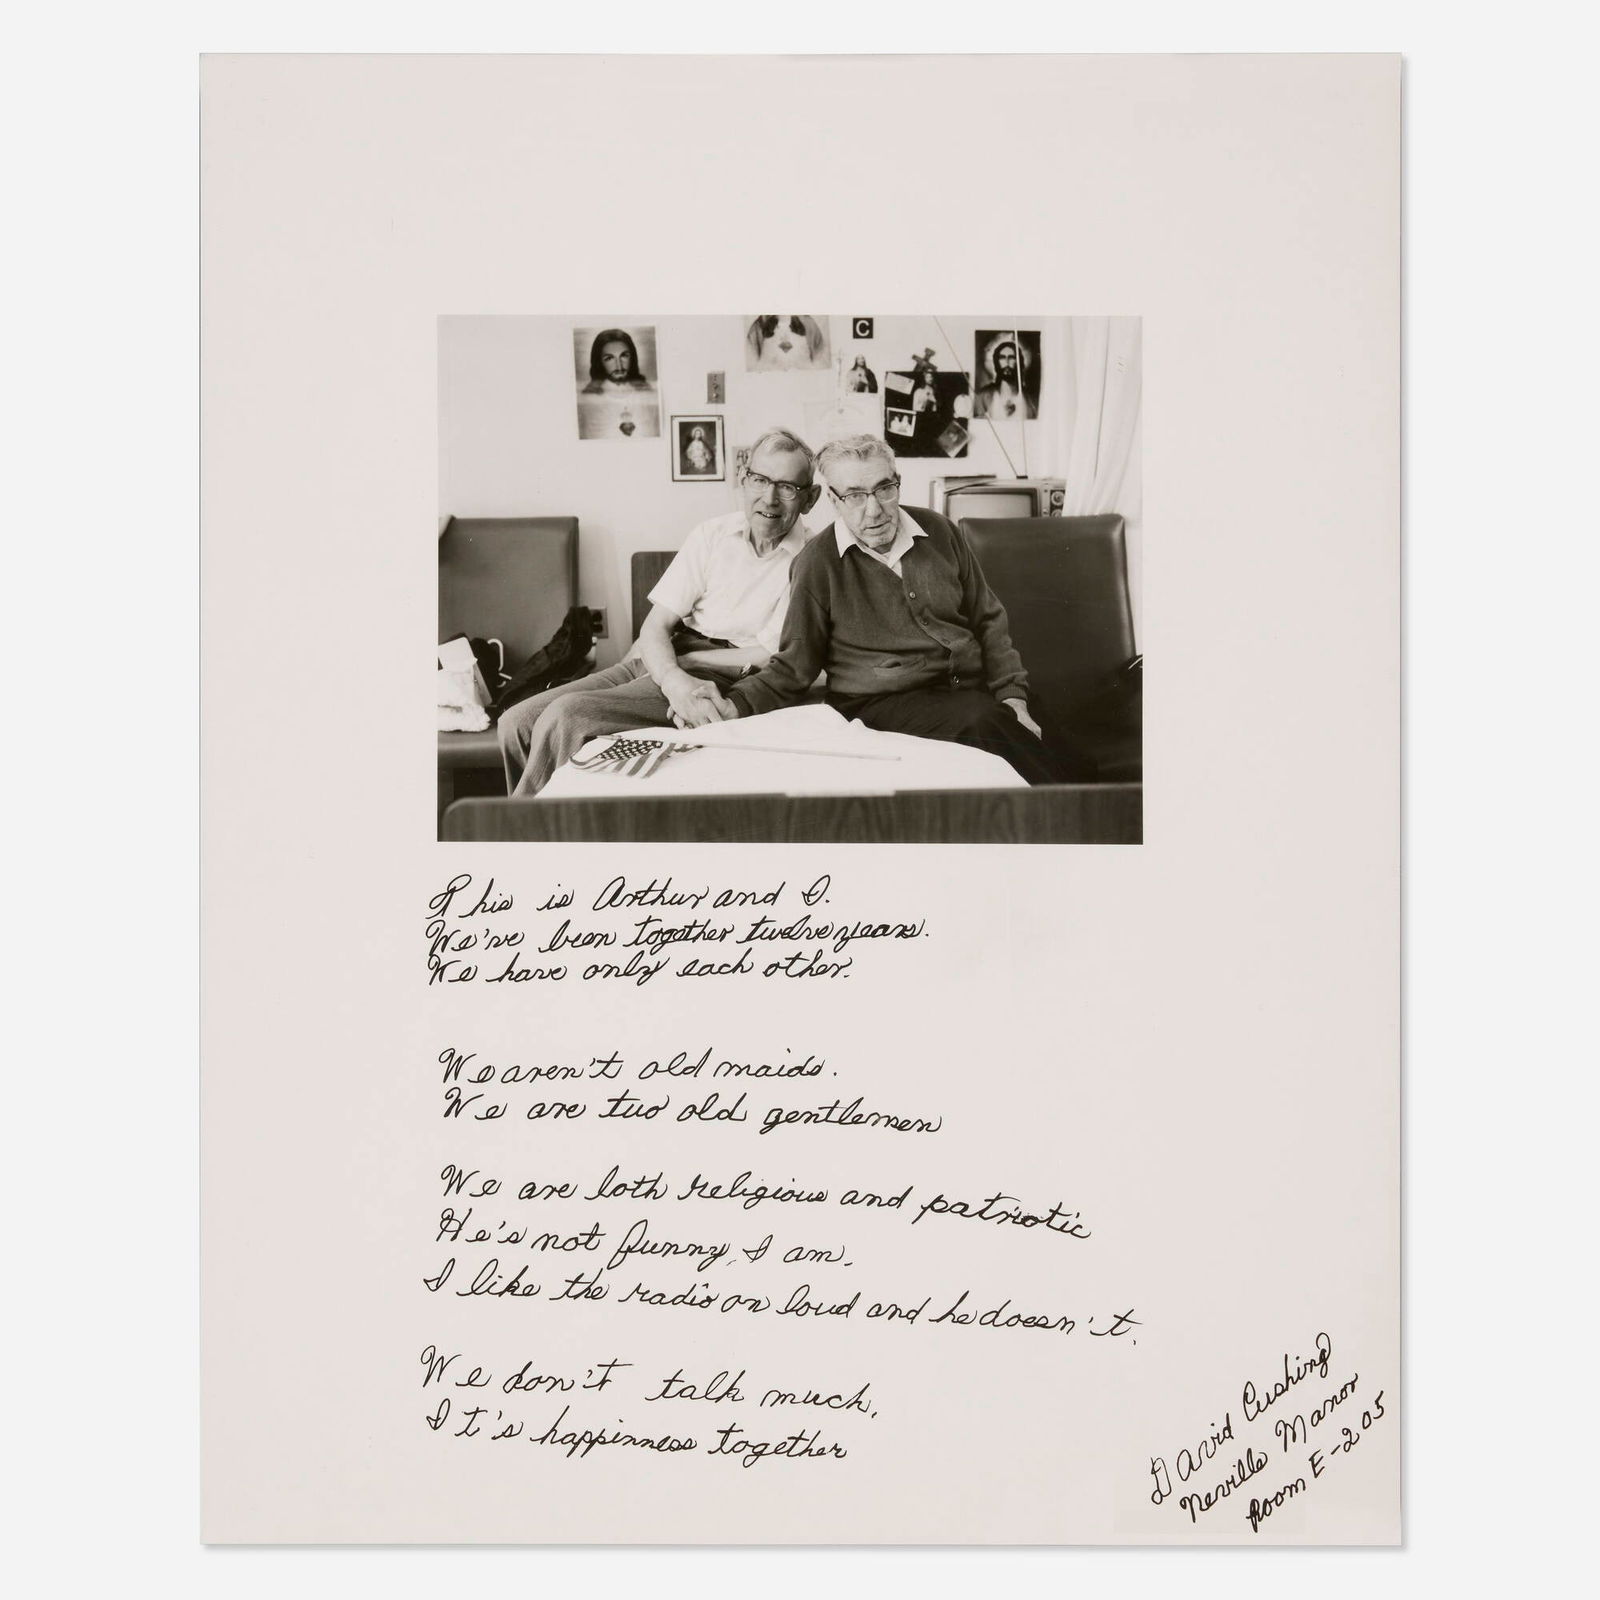 C
This is Arthur and I.
We've been together twelve years.
We have only each other.
We aren't old maids.
We are two old gentlemen
We are both religious and patriotic
He's not funny, I am.
I like the radio on loud and he doesn't.
We don't talk much.
It's happinness together
David Cushing
Neville Manor
Room E-205